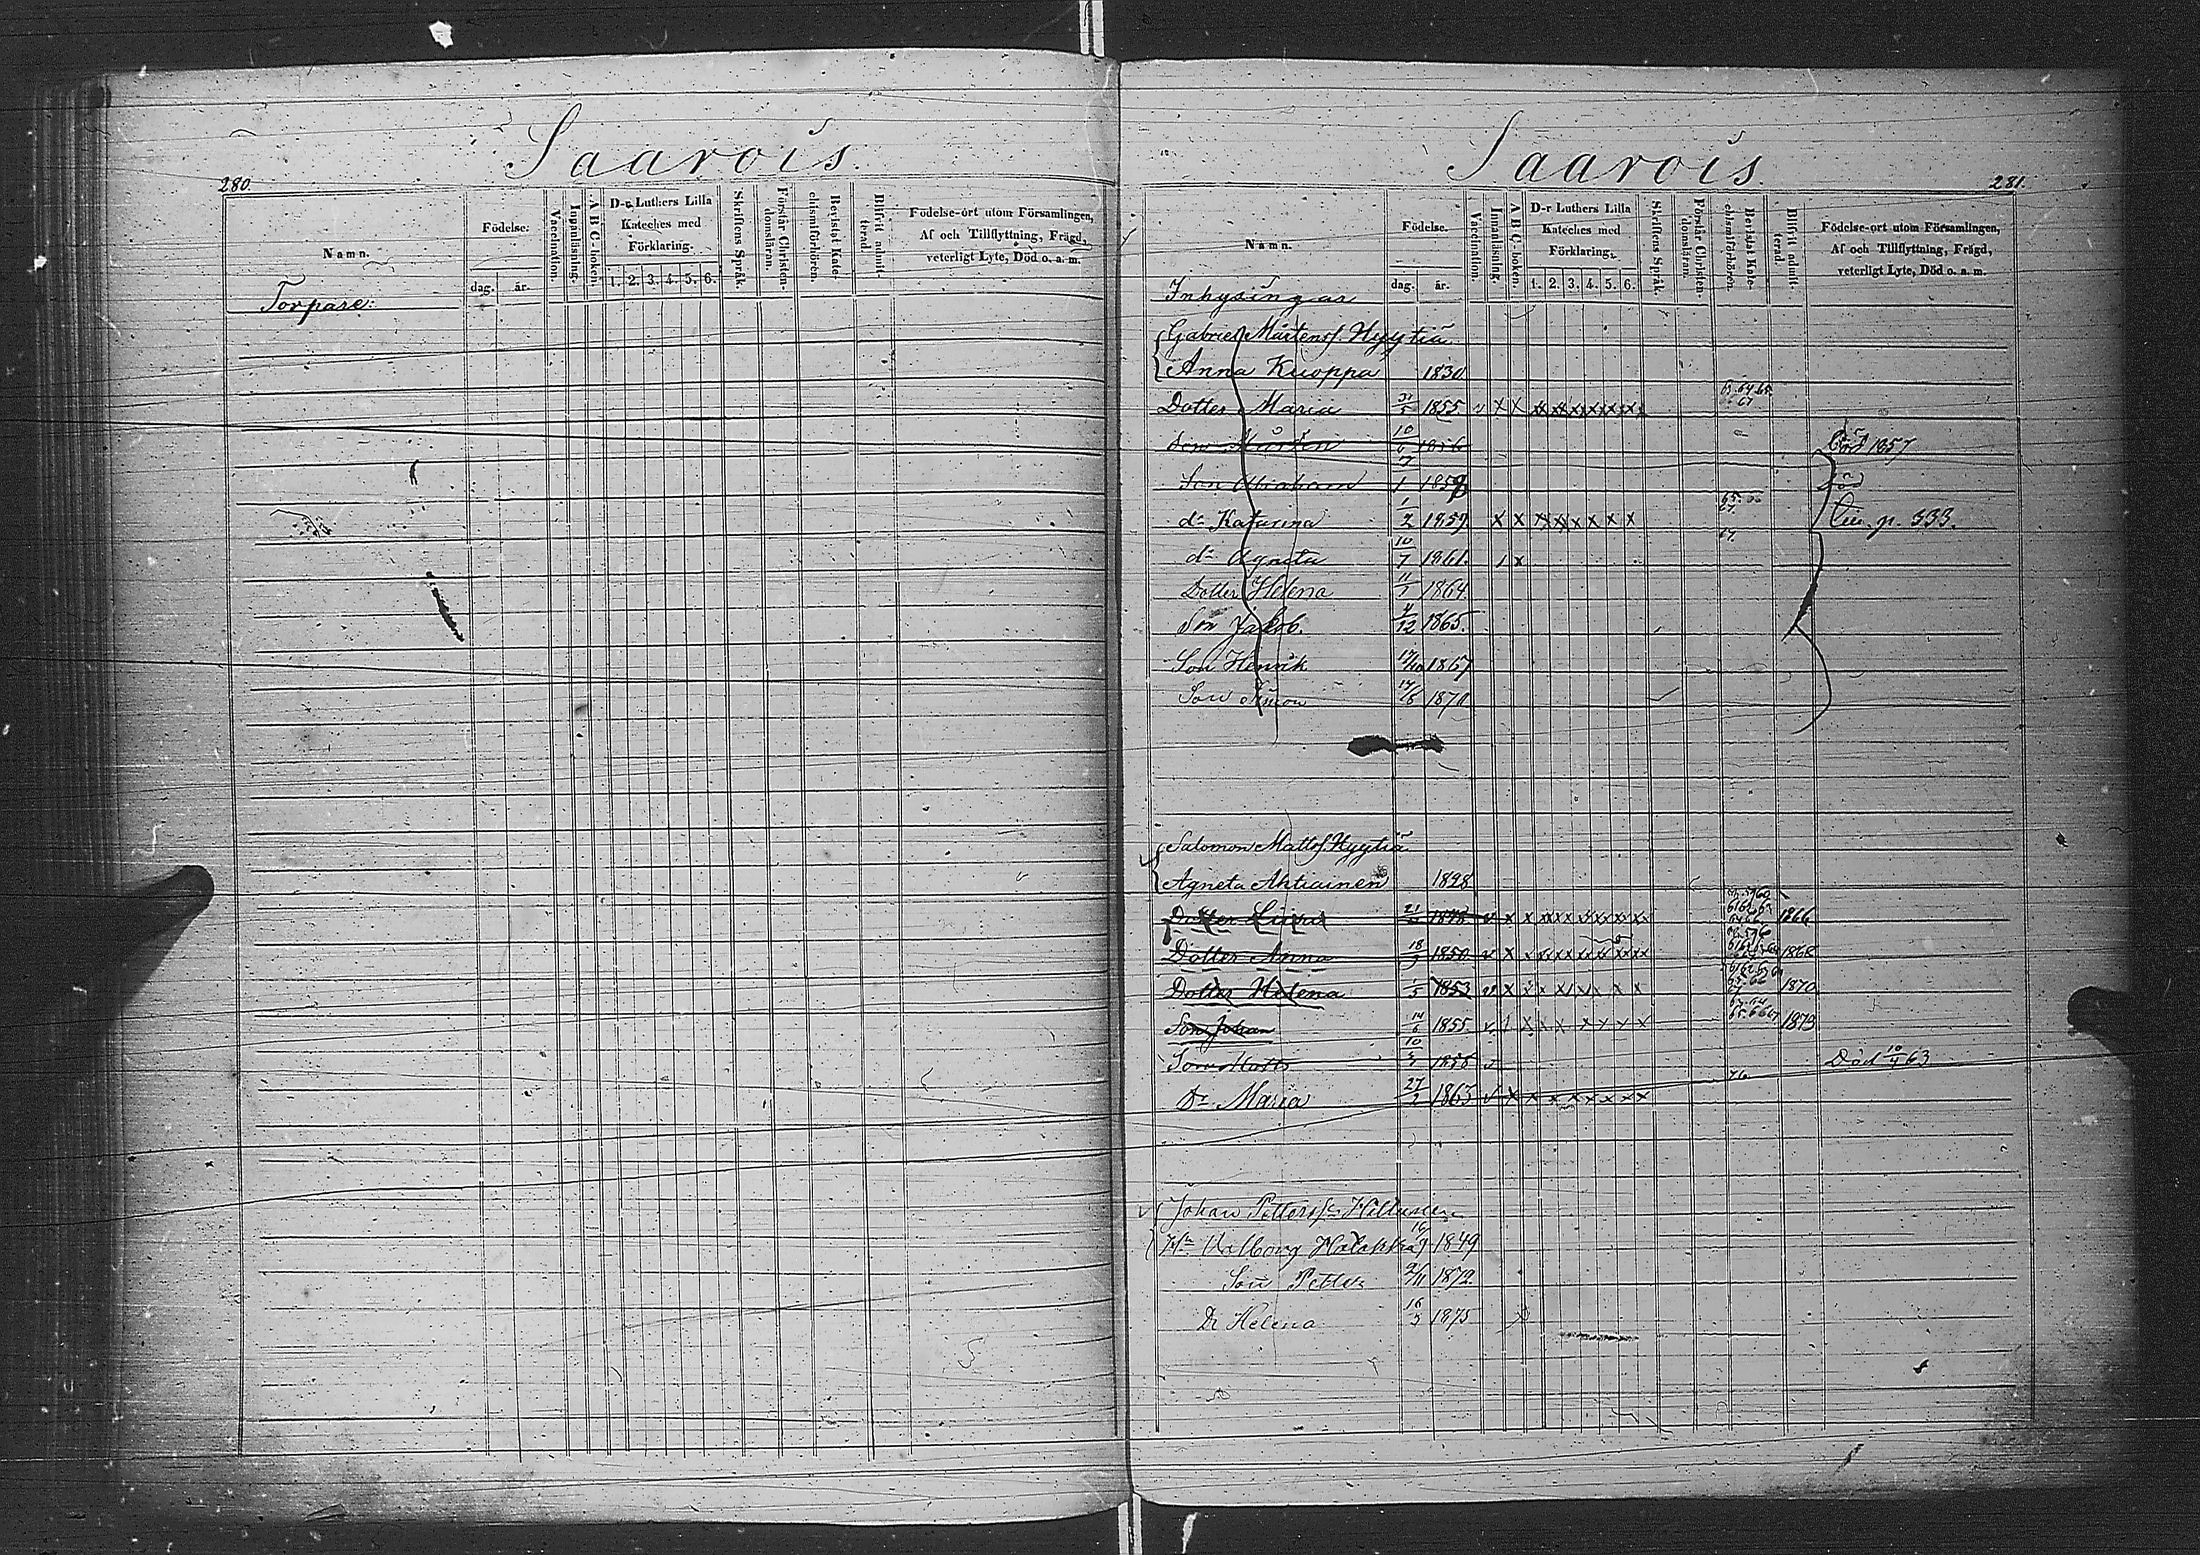 Saarois.
280.
Namn.
Födelse:
dag.
år.
Vaccination.
A B C-boken.
D-r Luthers Lilla
Kateches med
Förklaring.
1. 2. 3. 4. 5. 6.
Skriftens Språk.
Förstår Christen-
domsläran.
Bevistat Kate-
chismiförhören.
Blifvit admit-
terad.
Födelse-ort utom Församlingen,
Af och Tillflyttning, Frägd,
veterligt Lyte, Död o. a. m.
Torpare:
Saarois.
281.
Namn.
Födelse.
dag.
år.
Vaccination.
Innanläsning.
A B C-boken.
D-r Luthers Lilla
Kateches med
Förklaring.
1. 2. 3. 4. 5. 6.
Skriftens Språk.
Förstår Christen-
domsläran.
Bevistat Kate-
chismiförhören.
Blifvit admit-
terad.
Födelse-ort utom Församlingen,
Af och Tillflyttning, Frägd,
veterligt Lyte, Död o. a. m.
Inhysingar
Gabriel Mårtens. Hyytiä
Anna Kuoppa 1830
Dotter Maria 31/5 1855 v x x
Son Mårten 10/6 1856 Död 1857
Son Abraham Död
dr Katarina 1/2 1859 x x x x x x x x p. 333.
dr Agneta 10/7 1861.
Dotter Helena 1864
Son Jakob. 4/12 1865.
Son Henrik 17/10 1867
Son Simon 1870
Salomon Matts. Hyytiä
Agneta Ahtiainen 1828
Dotter 1848 1866
Dotter Anna 18/9 1850 1868
Dotter Helena 1853 1870
Son Johan 14/6 1855 1873
Son Matts 1858 Död 10/4 63
Dr Maria 27/2 1863
Johan Petterss. Hiltunen
Hu Valborg 1849
Son Petter 2/11 1872.
Dr Helena 16/3 1875